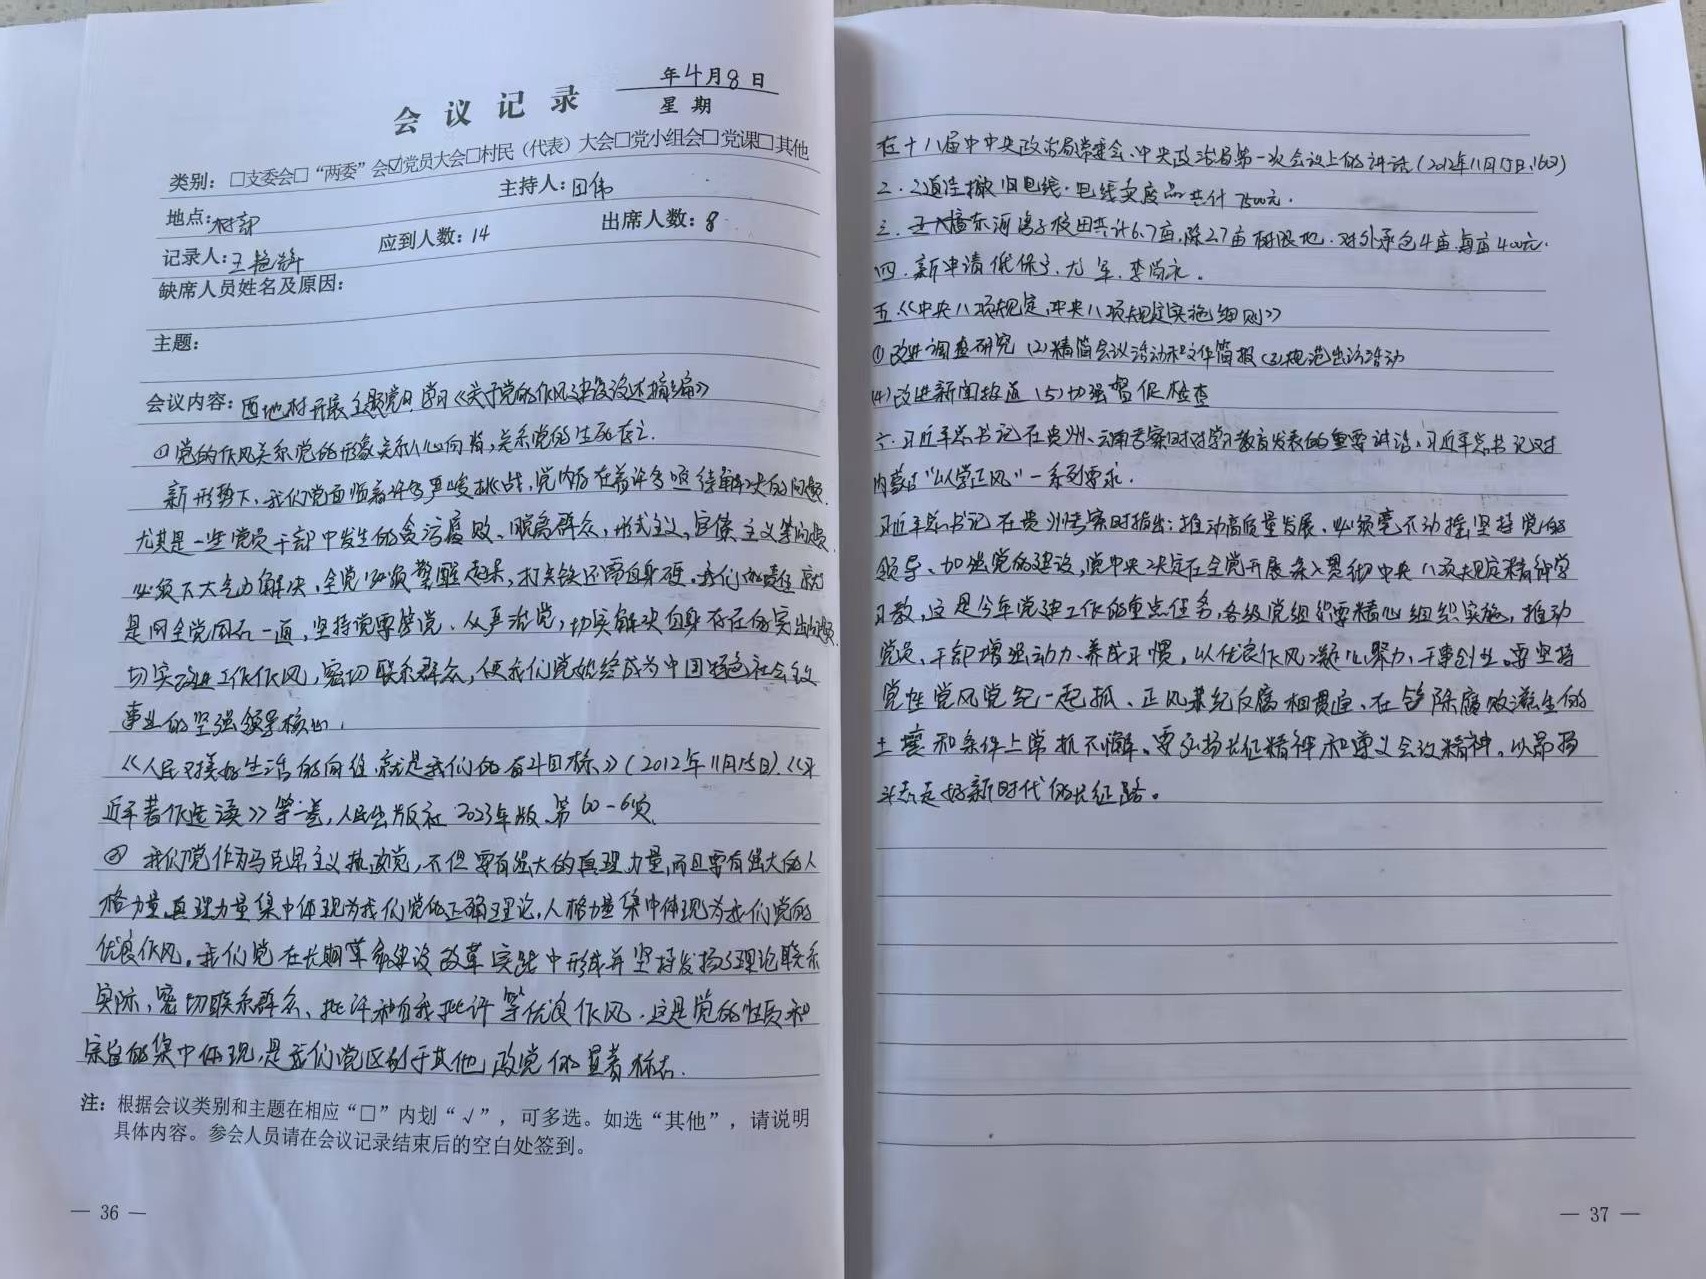 年4月8日
会议记录
星期
类别：□支委会□“两委”会☑党员大会□村民（代表）大会□党小组会□党课□其他
地点：村部 主持人：田伟
记录人：王艳辉 应到人数：14 出席人数：8
缺席人员姓名及原因：
主题：
会议内容：西地村开展主题党日 学习《关于党的作风建设论述摘编》
①党的作风关系党的形象关系人心向背，关系党的生死存亡.
新形势下，我们党面临着许多严峻挑战，党内存在着许多亟待解决的问题.
尤其是一些党员干部中发生的贪污腐败、脱离群众，形式主义，官僚主义等问题.
必须下大气力解决，全党必须警醒起来，打铁还需自身硬。我们的责任就
是同全党同志一道，坚持党要管党、从严治党，切实解决自身存在的突出问题
切实改进工作作风，密切联系群众，使我们党始终成为中国特色社会主义
事业的坚强领导核心.
《人民对美好生活的向往，就是我们的奋斗目标》（2012年11月15日）.《习
近平著作选读》第一卷，人民出版社2023年版、第60-61页
② 我们党作为马克思主义执政党，不但要有强大的真理力量，而且要有强大的人
格力量，真理力量集中体现为我们党的正确理论，人格力量集中体现为我们党的
优良作风。我们党在长期革命建设改革实践中形成并坚持发扬了理论联系
实际，密切联系群众、批评和自我批评等优良作风，这是党的性质和
宗旨的集中体现，是我们党区别于其他政党的显著标志.
注：根据会议类别和主题在相应“□”内划“√”，可多选。如选“其他”，请说明
具体内容。参会人员请在会议记录结束后的空白处签到。
— 36 —
在十八届中中央政治局常委会、中央政治局第一次会议上的讲话（2012年11月15日、16日）
二. 道洼撤旧电线. 电线卖废品共计7500元.
三. 东河湾子校田共计6.7亩，除2.7亩树股地. 对外承包4亩，每亩400元.
四. 新申请低保户. 尤军. 李尚元.
五《中央八项规定，中央八项规定实施细则》
①改进调查研究 (2)精简会议活动和文件简报 (3)规范出访活动
(4)改进新闻报道 (5)切强督促检查
六. 习近平总书记在贵州、云南考察时对学习教育发表的重要讲话、习近平总书记对
内蒙古“以学正风”一系列要求.
习近平总书记在贵州考察时指出：推动高质量发展，必须毫不动摇坚持党的
领导、加强党的建设，党中央决定在全党开展深入贯彻中央八项规定精神学
习教，这是今年党建工作的重点任务，各级党组织要精心组织实施，推动
党员、干部增强动力、养成习惯，以优良作风凝心聚力、干事创业。要坚持
党性党风党纪一起抓、正风肃纪反腐相贯通、在铲除腐败滋生的
土壤和条件上常抓不懈。要弘扬长征精神和遵义会议精神。以昂扬
斗志走好新时代的长征路。
— 37 —